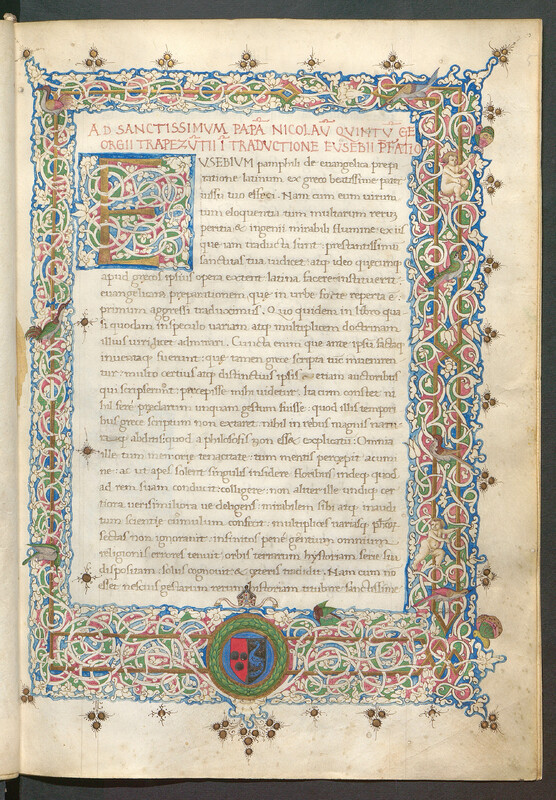 AD SANCTISSIMVM PAPĀ NICOLAŪ QVINTŪ GE
ORGII TRAPEZŪTII Ī TRADVCTIONE EVSEBII P̄FATIO
EUSEBIUM pamphili de evangelica prepa
ratione latinum ex greco beatissime pater
iussu tuo effeci. Nam cum eum virum
tum eloquentia tum multarum rerum
peritia & ingenii mirabili flumine ex iis
que iam traducta sunt prestantissimum
sanctitas tua iudicet atqꝫ ideo quecumqꝫ
apud grecos ipsius opera extent latina facere instituerit:
euangelicam preparationem que in urbe forte reperta ē
primum aggressi traduximus. Quo quidem in libro qua
si quodam in speculo uariam atqꝫ multiplicem doctrinam
illius uiri licet admirari. Cuncta enim que ante ipsum facta
inuentaqꝫ fuerunt que tamen grece scripta tūc inueniren
tur: multo certius atqꝫ distinctius ipsis etiam auctoribus
qui scripserunt percepisse mihi uidetur. Ita cum constet ni
hil fere preclarum unquam gestum fuisse quod illis tempori
bus grece scriptum non extaret: nihil in rebus magnis natu
raqꝫ abditis quod a philosophis non esset explicatū: Omnia
ille tum memorie tenacitate: tum mentis percepit acumi
ne: ac ut apes solent singulis insidere floribus indeqꝫ quod
ad rem suam conducit colligere: non aliter ille undiqꝫ cer
tiora uerisimiliora ue deligens mirabilem sibi atqꝫ inaudi
tum scientie cumulum confecit: multiplices uariasqꝫ phōr
sectas non ignorauit: infinitos pene gentium omnium
religionis errores tenuit: orbis terrarum hystoriam serie sua
dispositam solus cognouit & ceteris tradidit. Nam cum nō
esset nescius gestarum rerum historiam titubare sanctissime